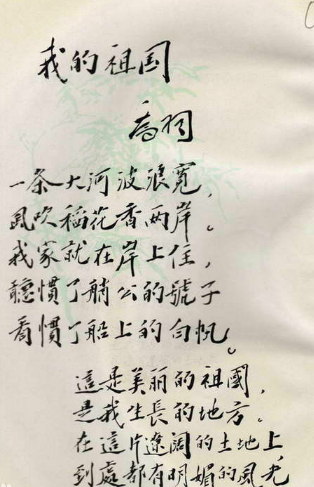 我的祖国
乔羽
一条大河波浪宽，
风吹稻花香两岸。
我家就在岸上住，
聽慣了艄公的號子
看慣了船上的白帆。
這是美丽的祖國，
是我生長的地方。
在這片遼阔的土地上，
到處都有明媚的風光